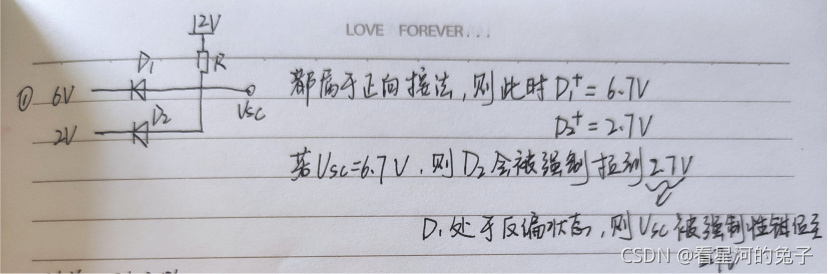 12V
LOVE FOREVER...
D₁
R
① 6V
Vsc
都属于正向接法,则此时 D₁⁺=6.7V
D₂
2V
D₂⁺=2.7V
若Vsc=6.7V,则D₂会被强制拉到2.7V
D₁处于反偏状态,则Vsc被强制性钳位至
CSDN @看星河的兔子